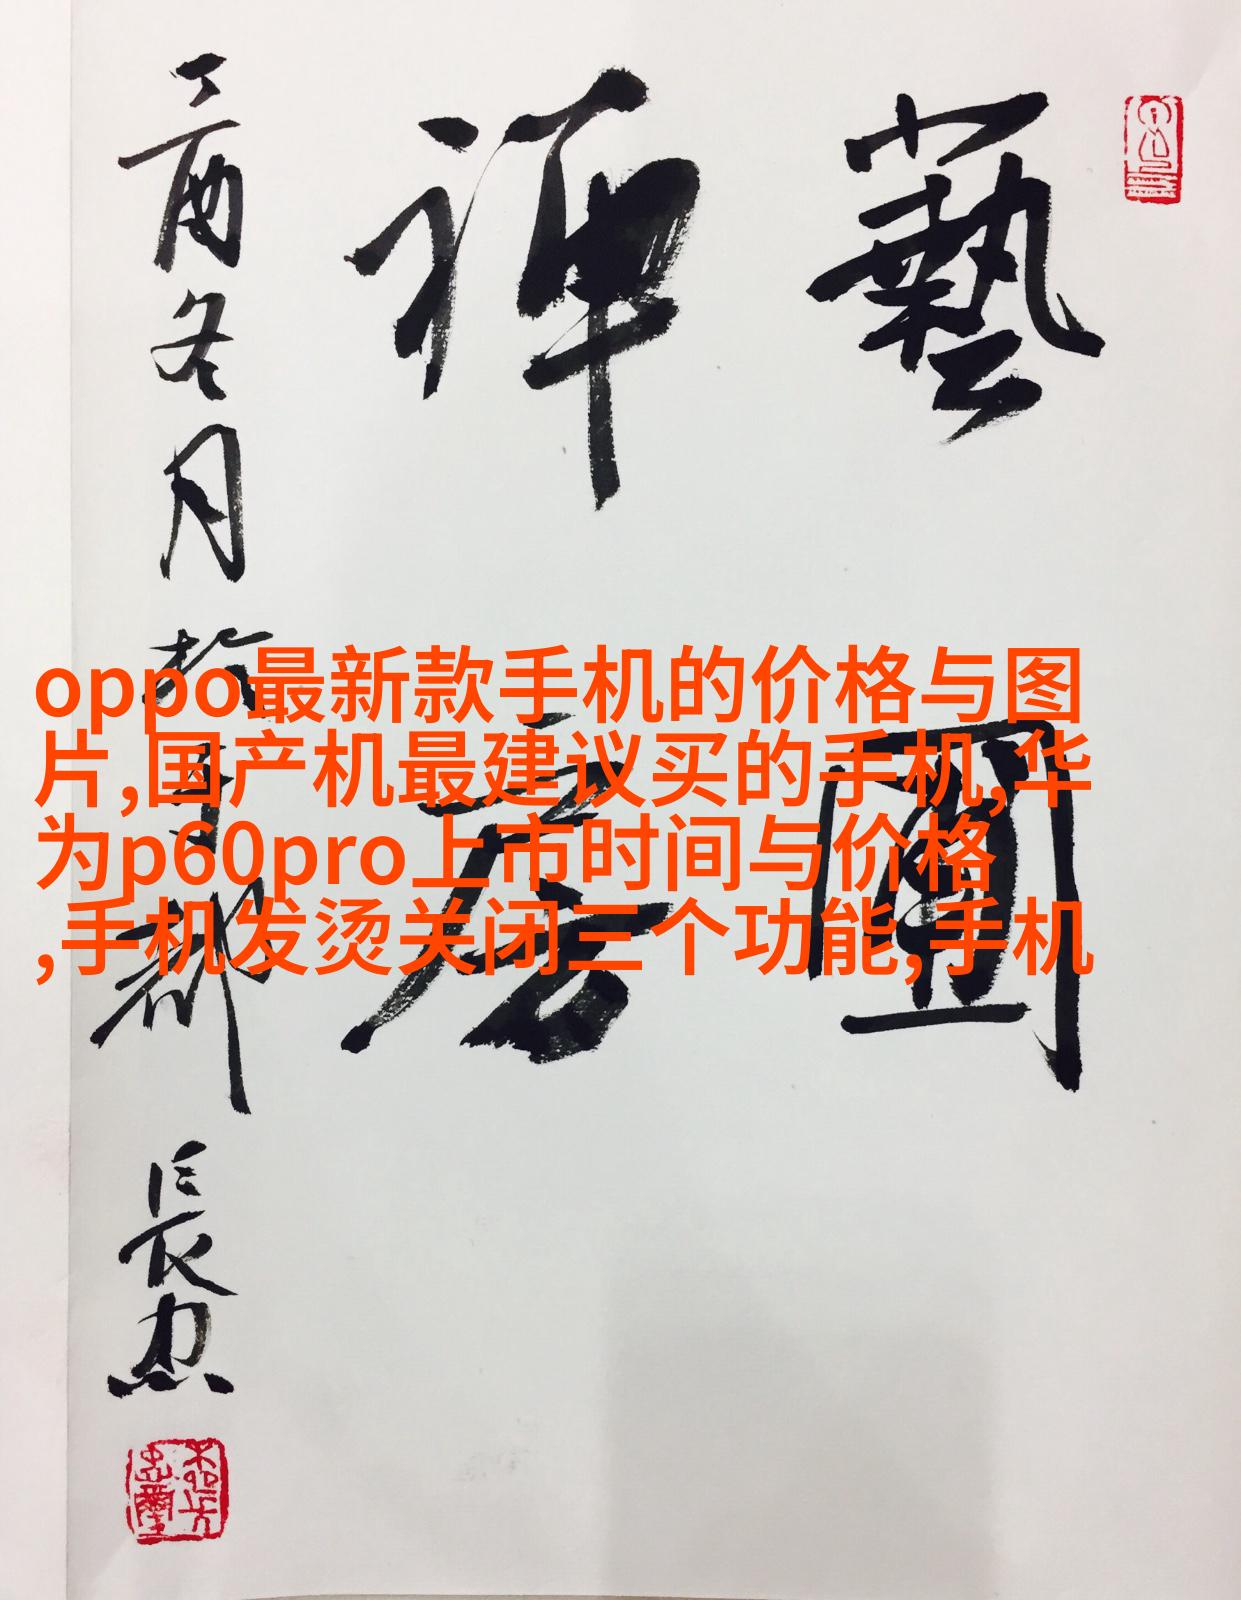 藝圃
禪唐
丁酉冬月於京都
長忠
oppo最新款手机的价格与图
片,国产机最建议买的手机,华
为p60pro上市时间与价格
,手机发烫关闭三个功能,手机